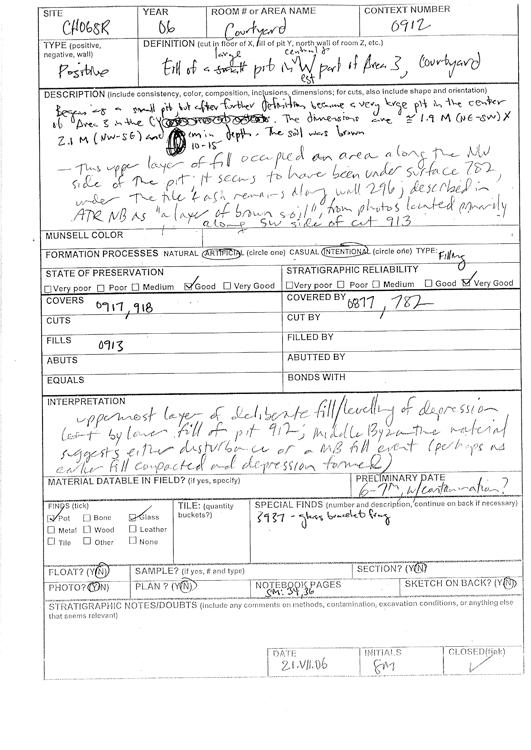 SITE YEAR ROOM # or AREA NAME CONTEXT NUMBER
CH06SR 06 Courtyard 0912
TYPE (positive, negative, wall) DEFINITION (cut in floor of X, fill of pit Y, north wall of room Z, etc.)
Positive Fill of a small large pit in central & West part of Area 3, Courtyard
DESCRIPTION (include consistency, color, composition, inclusions, dimensions; for cuts, also include shape and orientation)
Began as a small pit but after further definition became a very large pit in the center
of Area 3 in the CY. The dimensions are ≅ 1.9 M (NE-SW) X
2.1 M (NW-SE) and 10-15 cm in depth. The soil was brown
— This upper layer of fill occupied an area along the NW
side of the pit; it seems to have been under surface 782,
under the tile & ash remains along wall 296; described in
ATR NB as "a layer of brown soil", from photos located primarily
along SW side of cut 913
MUNSELL COLOR
FORMATION PROCESSES NATURAL ARTIFICIAL (circle one) CASUAL INTENTIONAL (circle one) TYPE: Filling
STATE OF PRESERVATION STRATIGRAPHIC RELIABILITY
Very poor Poor Medium Good Very Good Very poor Poor Medium Good Very Good
COVERS 0917, 918 COVERED BY 0877, 782
CUTS CUT BY
FILLS 0913 FILLED BY
ABUTS ABUTTED BY
EQUALS BONDS WITH
INTERPRETATION
uppermost layer of deliberate fill/levelling of depression
left by lower fill of pit 912; Middle Byzantine material
suggests either disturbance or a MB fill event (perhaps as
earlier fill compacted and depression formed)
MATERIAL DATABLE IN FIELD? (if yes, specify) PRELIMINARY DATE
6-7th, w/contamination?
FINDS (tick) TILE: (quantity buckets?) SPECIAL FINDS (number and description, continue on back if necessary)
Pot Bone Glass 3937 - glass bracelet frag
Metal Wood Leather
Tile Other None
FLOAT? (Y/N) SAMPLE? (if yes, # and type) SECTION? (Y/N)
PHOTO? (Y/N) PLAN? (Y/N) NOTEBOOK PAGES SM: 34, 36 SKETCH ON BACK? (Y/N)
STRATIGRAPHIC NOTES/DOUBTS (include any comments on methods, contamination, excavation conditions, or anything else
that seems relevant)
DATE INITIALS CLOSED (tick)
21.VII.06 SM